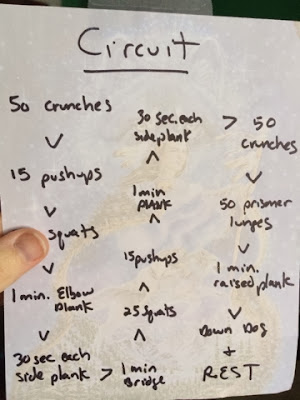 Circuit
50 crunches
15 pushups
squats
1 min. Elbow
Plank
30 sec each
side plank
1 min
Bridge
25 squats
15 pushups
1 min
PLANK
30 sec. each
side plank
50
crunches
50 prisner
lunges
1 min.
raised plank
Down Dog
+
REST